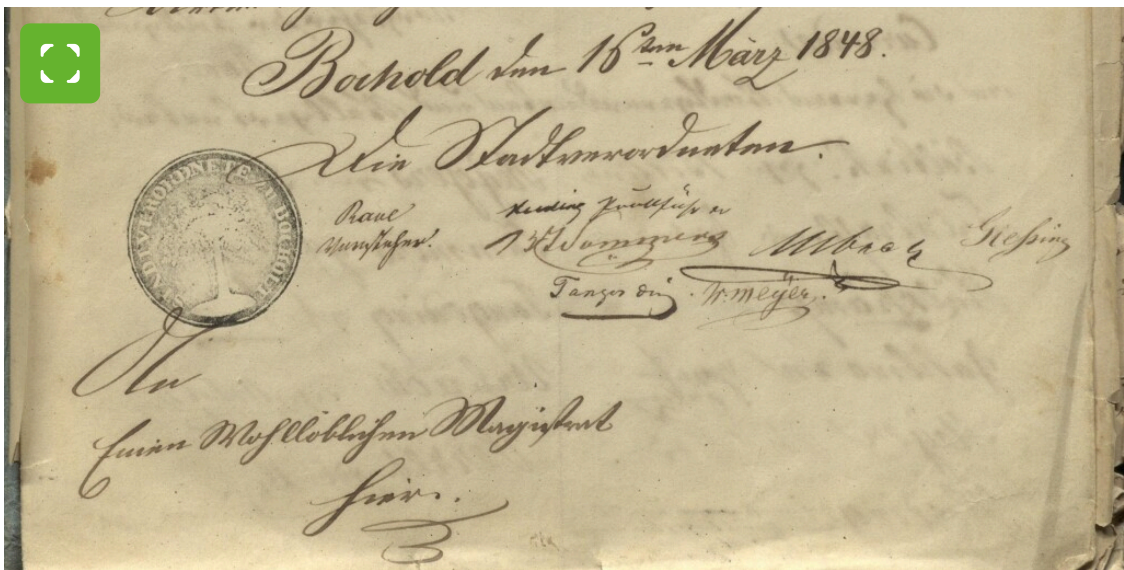 Bocholt den 16ten März 1848.
Die Stadtverordneten.
STADTVERORDNETE ZU BOCHOLT
Rave
Vorsteher.
Protokollführer
Ellbrack
Giesing
W. Meyer.
An
Einen Wohllöblichen Magistrat
hier.